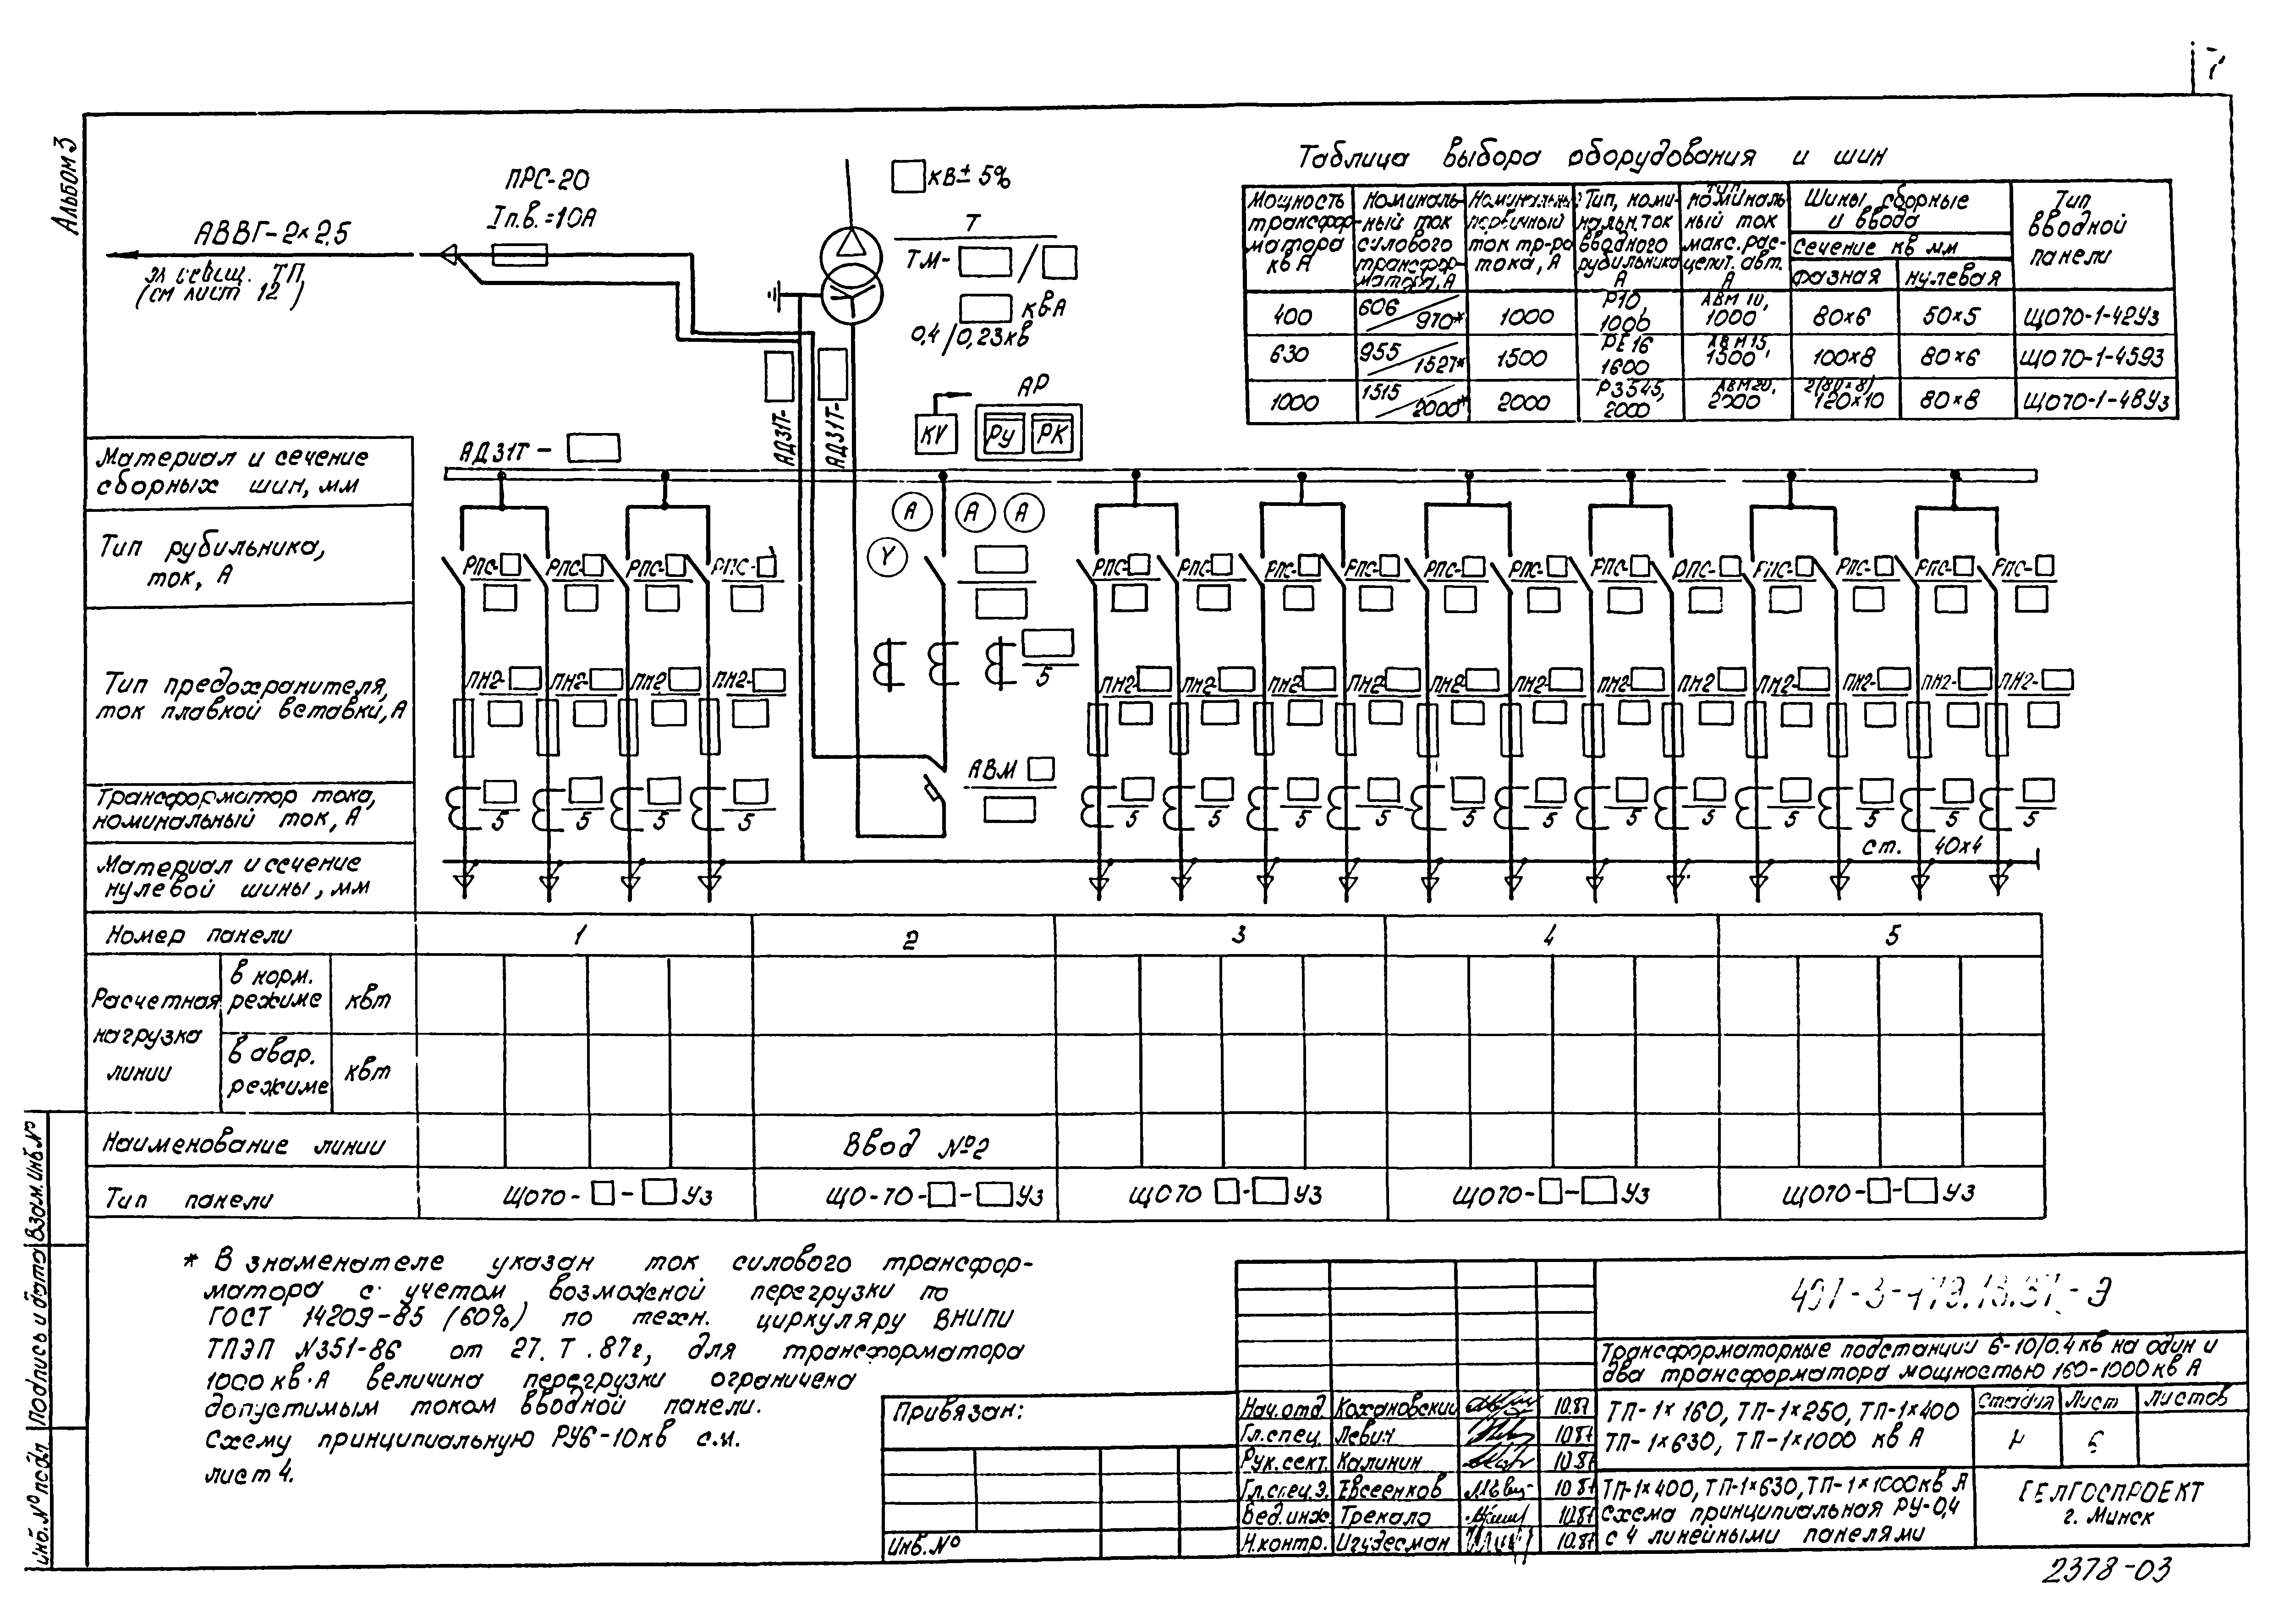 7
Альбом 3
ПРС-20
Iп.в.=10А
АВВГ-2×2,5
эл. освещ. ТП
(см лист 12)
кв ± 5%
Т
ТМ- /
кв·А
0,4/0,23кв
АД31Т-
АД31Т-
АР
KV РУ РК
АД31Т-
Таблица выбора оборудования и шин
Мощность трансформатора кв А
Номинальный ток силового трансформатора, А
Номинальный первичный ток тр-ра тока, А
Тип, номинальн. ток вводного рубильника А
Тип номинальный ток макс. расцепит. авт. А
Шины сборные и ввода
сечение кв мм
фазная нулевая
Тип вводной панели
400 606/970* 1000 Р10, 1000 АВМ 10, 1000 80×6 50×5 ЩО70-1-42У3
630 955/1527* 1500 РЕ16 1600 АВМ15, 1500 100×8 80×6 ЩО70-1-45У3
1000 1515/2000* 2000 Р3545, 2000 АВМ20, 2000 2(80×8) 120×10 80×8 ЩО70-1-48У3
Материал и сечение
сборных шин, мм
Тип рубильника,
ток, А
Тип предохранителя,
ток плавкой вставки, А
Трансформатор тока,
номинальный ток, А
Материал и сечение
нулевой шины, мм
А А А
Y
РПС- РПС- РПС- РПС- РПС- РПС- РПС- РПС- РПС- РПС- РПС- РПС- РПС- РПС- РПС- РПС-
5
ПН2- ПН2- ПН2- ПН2- ПН2- ПН2- ПН2- ПН2- ПН2- ПН2- ПН2- ПН2- ПН2- ПН2- ПН2- ПН2-
АВМ
5 5 5 5 5 5 5 5 5 5 5 5 5 5 5 5
ст. 40×4
Номер панели 1 2 3 4 5
Расчетная нагрузка линии
в норм. режиме квт
в авар. режиме квт
Наименование линии Ввод №2
Тип панели ЩО70- - У3 ЩО-70- - У3 ЩО70 - У3 ЩО70- - У3 ЩО70- - У3
* В знаменателе указан ток силового трансфор-
матора с учетом возможной перегрузки по
ГОСТ 14209-85 (60%) по техн. циркуляру ВНИПИ
ТПЭП №351-86 от 27. Т .87г, для трансформатора
1000 кв·А величина перегрузки ограничена
допустимым током вводной панели.
Схему принципиальную РУ6-10кв см.
лист 4.
Инв. № подл Подпись и дата Взам. инв №
Привязан:
Инв. №
Нач. отд. Кохановский 10.87
Гл. спец. Левич 10.87
Рук. сект. Калинин 10.87
Гл. спец. Э. Евсеенков 10.87
Вед. инж. Трекало 10.87
Н. контр. Игудесман 10.87
Трансформаторные подстанции 6-10/0.4 кв на один и
два трансформатора мощностью 160-1000 кв А
ТП-1×160, ТП-1×250, ТП-1×400
ТП-1×630, ТП-1×1000 кв А
Стадия Лист Листов
ТП-1×400, ТП-1×630, ТП-1×1000кв А
схема принципиальная РУ-0,4
с 4 линейными панелями
БЕЛГОСПРОЕКТ
г. Минск
2378-03